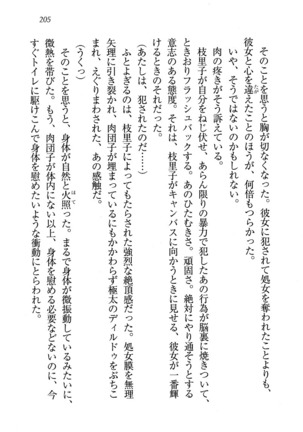 そのことを思うと胸が切なくなった。彼女に犯されて処女を奪われたことよりも、
彼女と心を違えたことのほうが、何倍もつらかった。
いや、そうではないのかもしれない。
肉の疼きがそう訴えている。
枝里子が自分をねじ伏せ、あらん限りの暴力で犯したあの行為が脳裏に焼きついて、
ときおりフラッシュバックする。あのひたむきさ。頑固さ。絶対にやり通そうとする
意志のある態度。それは、枝里子がキャンバスに向かうときに見せる、彼女が一番輝
けるときのそれだった。
（あたしは、犯されたのだ……）
ふとよぎるのは、枝里子によってもたらされた強烈な絶頂感だった。処女膜を無理
矢理に引き裂かれ、肉団子が埋まっているにもかかわらず極太のディルドゥをぶちこ
まれ、えぐりまわされた、あの感触だ。
（うくっ）
そのことを思うと、身体が自然と火照った。まるで身体が微振動しているみたいに、
微熱を帯びた。もう、肉団子が体内にない以上、身体を慰める必要などないのに、今
すぐトイレに駆けこんで身体を慰めたいような衝動にとらわれた。
205